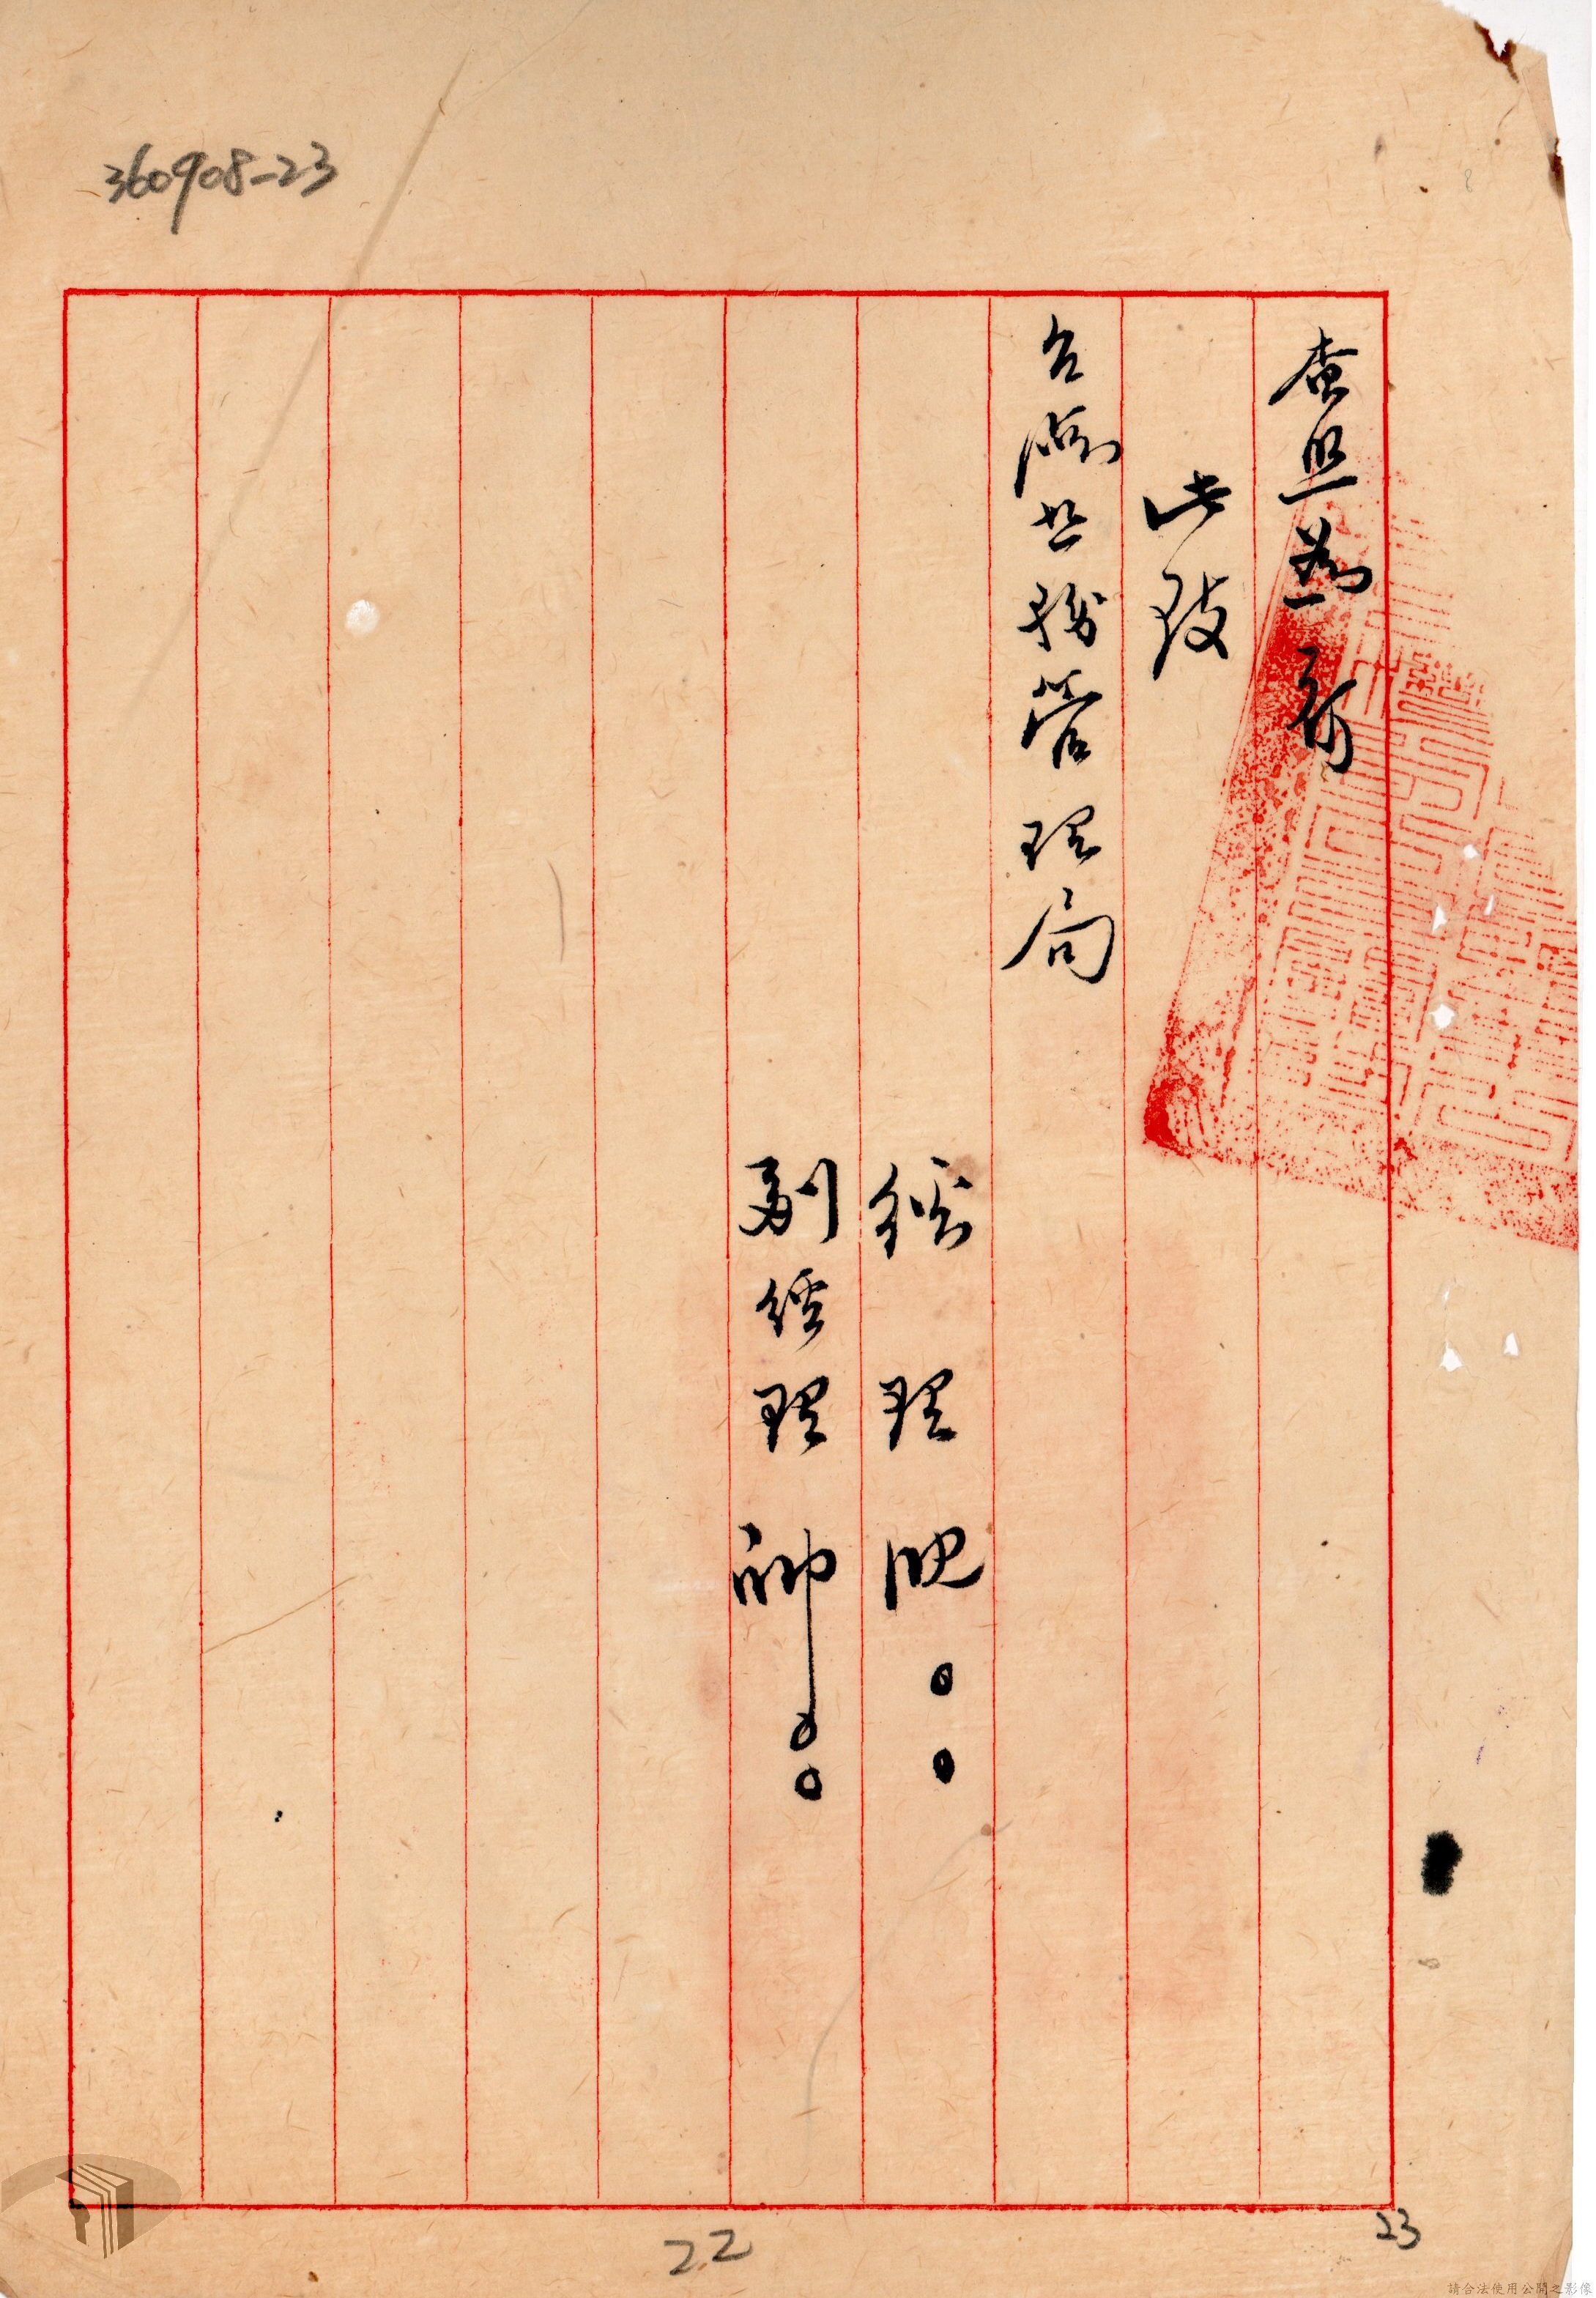 360908-23
查照為荷
此致
台灣菸務管理局
經理
副經理
22
23
請合法使用公開之影像